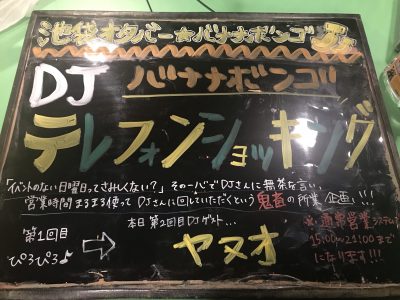 池袋オタバー★バナナボンゴ
DJ バナナボンゴ
テレフォンショッキング
「イベントのない日曜日ってさみしくない？」その一言でDJさんに無茶を言い、
営業時間まるまる使ってDJさんに回していただくという鬼畜の所業、企画!!!
本日第2回目DJゲスト...
第1回目
ぴろぴろ♪
⇨
ヤヌオ
※通常営業システム
15:00~23:00まで
になります!!!